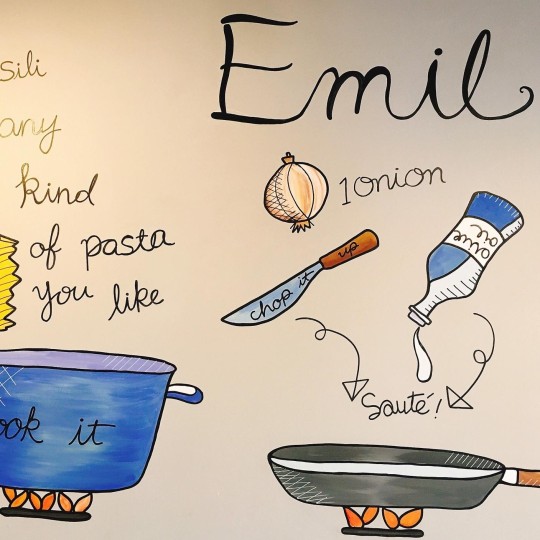 Emil
sili
any
kind
of pasta
you like
ook it
1 onion
chop it up
olive
oil
Sauté!